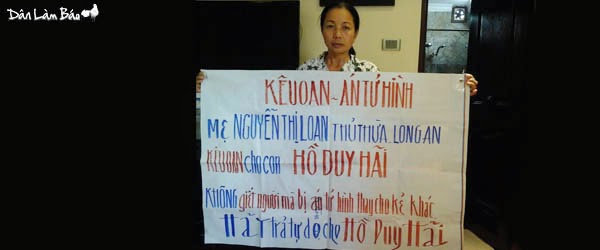 Dân Làm Báo
KÊU OAN ~ ÁN TỬ HÌNH
MẸ NGUYỄN THỊ LOAN THỦ THỪA LONG AN
KÊU OAN cho con HỒ DUY HẢI
KHÔNG giết người mà bị án tử hình thay cho kẻ khác
HÃY trả tự do cho HỒ DUY HẢI